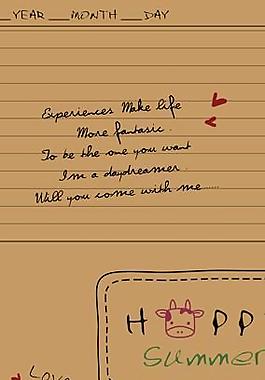 __YEAR __MONTH __DAY
Experiences Make life
More fantasic.
To be the one you want
I'm a daydreamer.
Will you come with me......
HAPP
Summer
LOVE